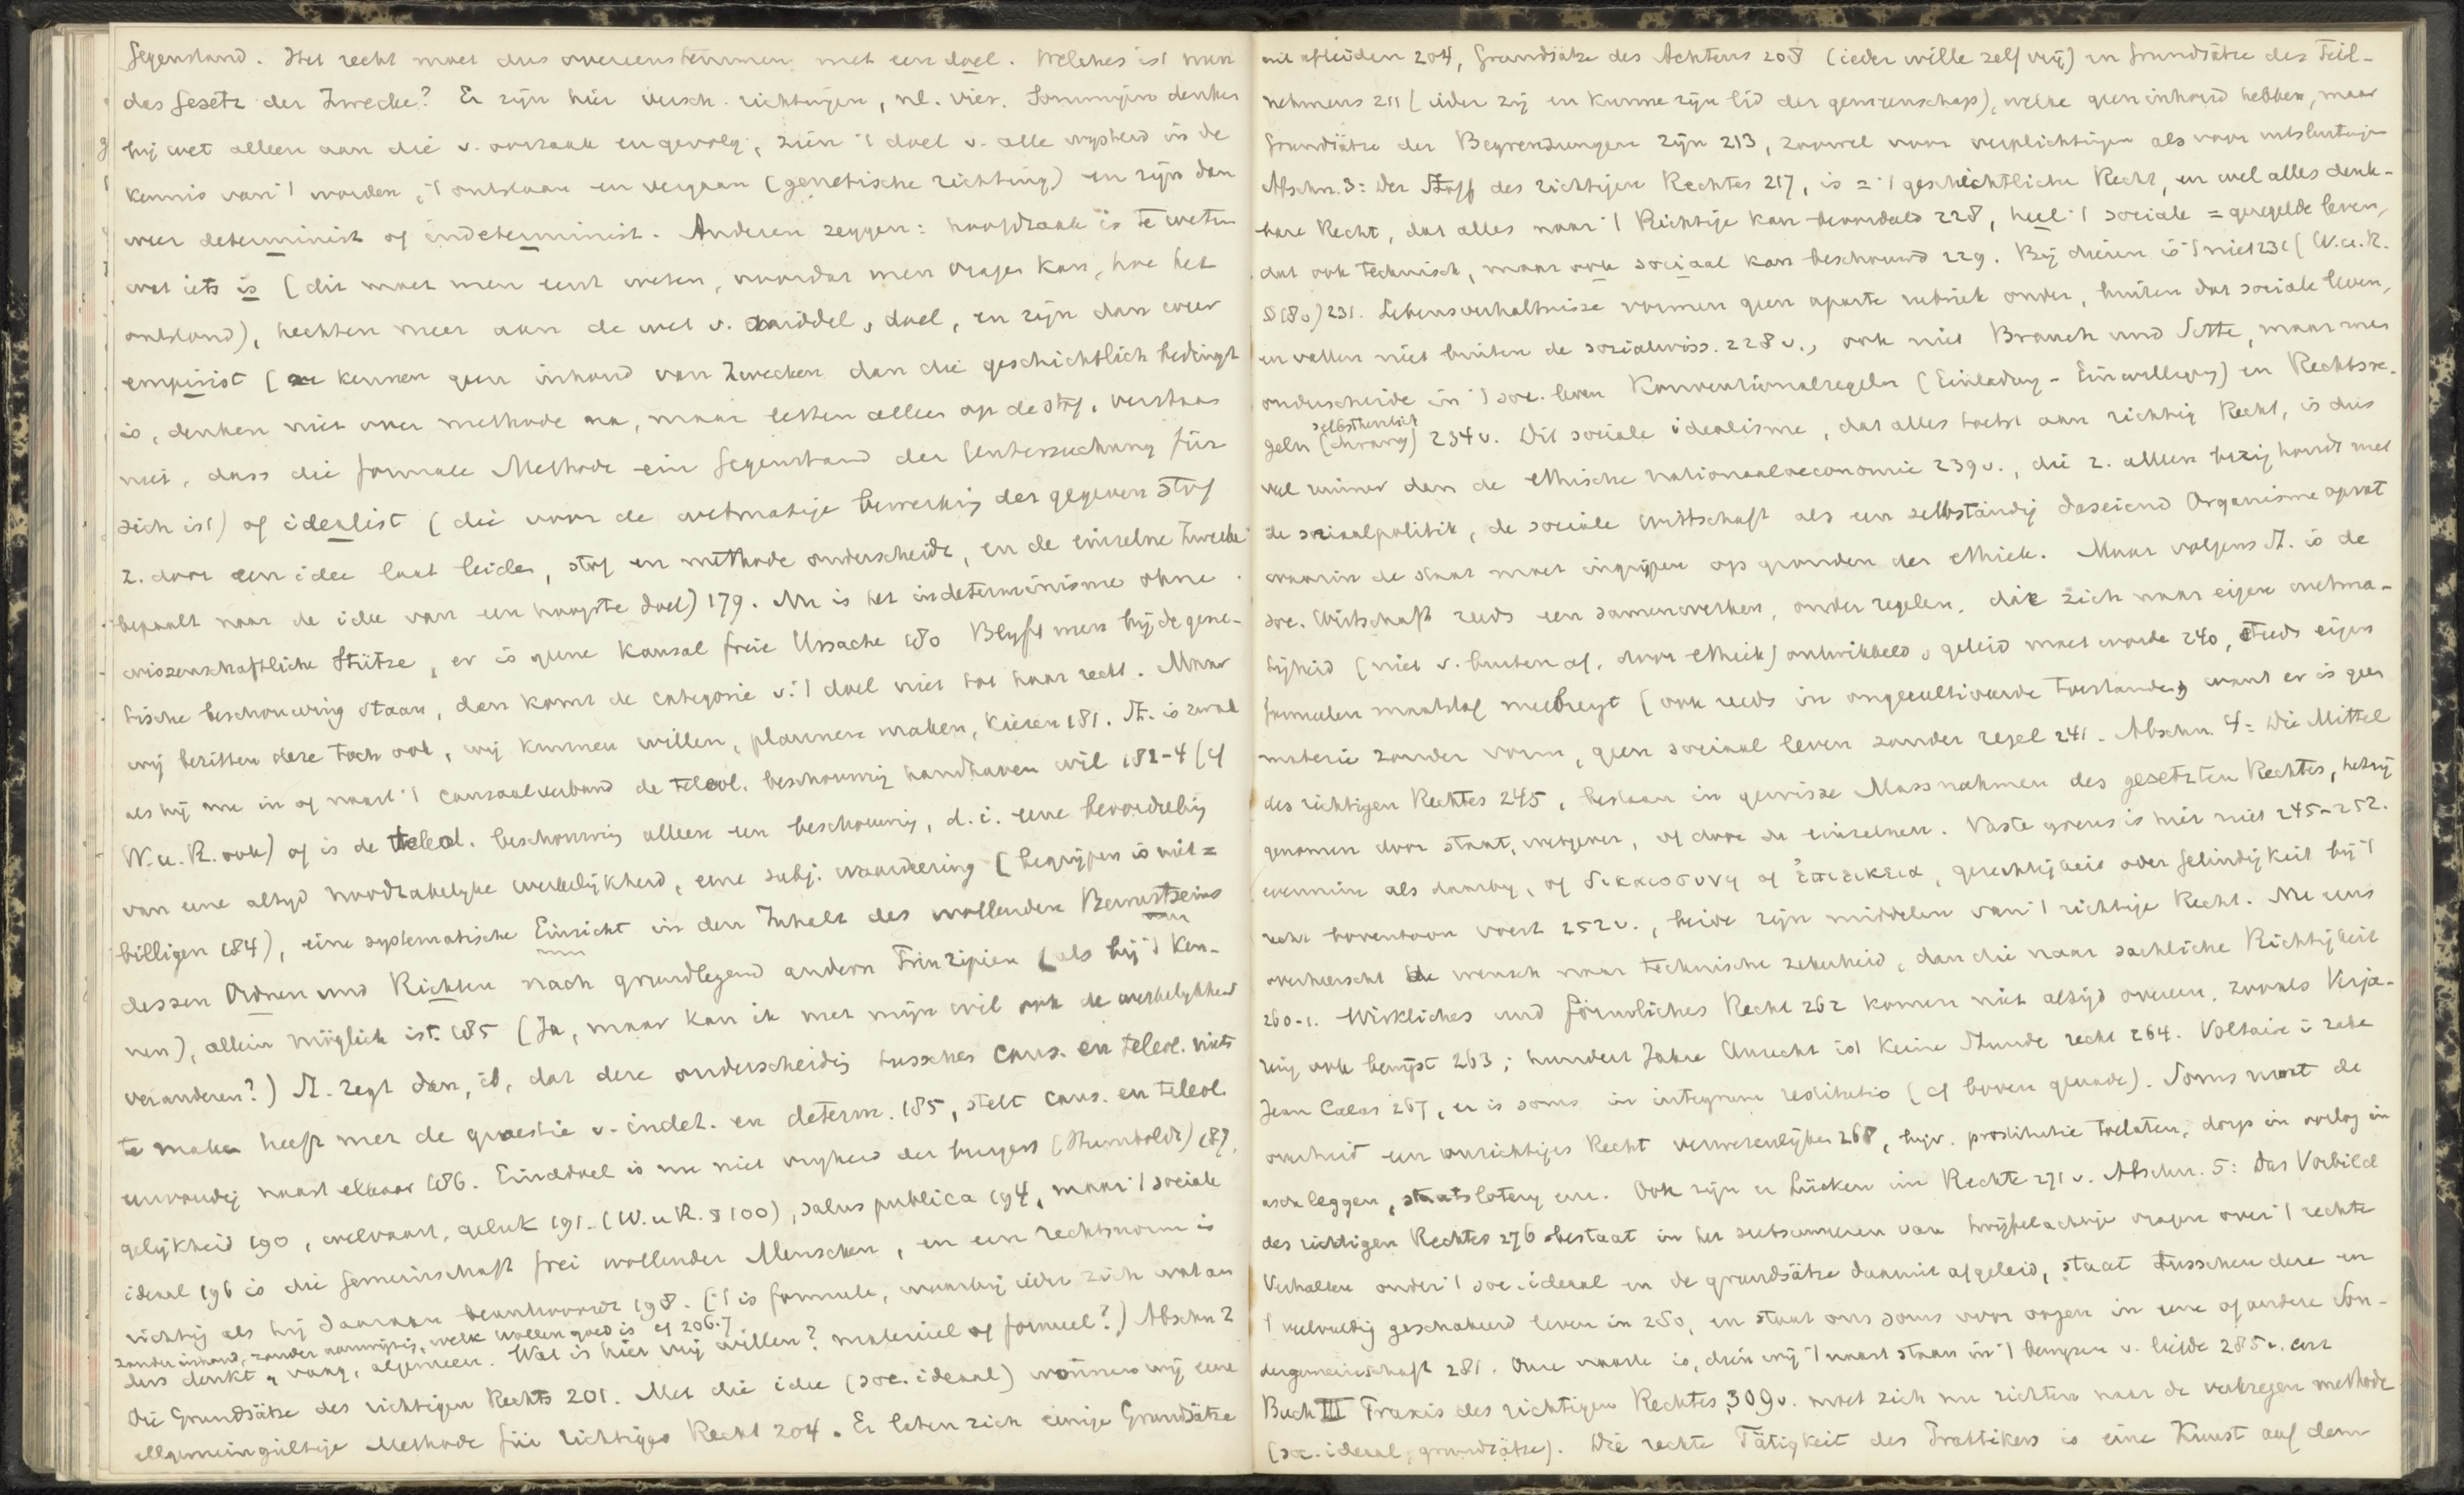 Gegenstand. Het recht moet dus overeenstemmen met een doel. Welches ist nun
das Gesetz der Zwecke? Er zijn hier versch. richtingen, nl. vier. Sommigen denken
bij wet alleen aan die v. oorzaak en gevolg, zien 't doel v. alle wijsheid in de
kennis van 't worden, 't ontstaan en vergaan (genetische richting) en zijn dan
weer determinist of indeterminist. Anderen zeggen: hoofdzaak is te weten
wat iets is (dit moet men eerst weten, voordat men vragen kan, hoe het
ontstond), hechten meer aan de wet v. middel, doel, en zijn dan weer
empirist (en kennen geen inhoud van Zwecken dan die geschichtlich bedingt
is, denken niet over methode na, maar letten alleen op de stof, verstaan
niet, dass die formale Methode ein Gegenstand der Untersuchung für
sich ist) of idealist (die voor de wetmatige bewerking der gegeven stof
z. door een idee laat leiden, stof en methode onderscheidt, en de einzelne Zwecke
bepaalt naar de idee van een hoogste doel) 179. Nu is het indeterminisme ohne
wissenschaftliche Stütze, er is geene kausal freie Ursache 180 Blijft men bij de gene-
tische beschouwing staan, dan komt de categorie v. 't doel niet tot haar recht. Maar
wij bezitten deze toch ook, wij kunnen willen, plannen maken, kiezen 181. St. is zwak
als hij nu in of naast 't causaalverband de teleol. beschouwing handhaven wil 182-4 (cf
W. u. R. ook) of is de teleol. beschouwing alleen een beschouwing, d. i. eene beoordeling
van eene altijd noodzakelijke werkelijkheid, eene subj. waardeering (begrijpen is niet =
billigen 184), eine systematische Einsicht in den Inhalt des wollenden Bewusstseins
dessen Ordnen und Richten nach grundlegend andern Prinzipien (als bij 't Ken-
nen), allein möglich ist. 185 (Ja, maar kan ik met mijn wil ook de werkelijkheid
veranderen?) St. zegt dan, dat deze onderscheiding tusschen caus. en teleol. niets
te maken heeft met de quaestie v. indet. en determ. 185, stelt caus. en teleol.
eenvoudig naast elkaar 186. Einddoel is nu niet vrijheid der burgers (Humboldt) 187,
gelijkheid 190, welvaart, geluk 191. (W. u R. § 100), salus publica 194, maar 't sociale
ideaal 196 is die Gemeinschaft frei wollender Menschen, en een rechtsnorm is
richtig als hij daaraan beantwoordt 198. ('t is formule, waarbij ieder zich wat an
zonder inhoud, zonder aanwijzing, welk wollen goed is cf 206.7
ders denkt, vaag, algemeen. Wat is hier vrij willen? materieel of formeel?) Abschn 2
Die Grundsätze des richtigen Rechts 201. Met die idee (soc. ideaal) winnen wij eene
allgemeingültige Methode für richtiges Recht 204. Er laten zich einige Grundsätze
uit afleiden 204, Grundsätze des Achtens 208 (ieder wille zelf vrij) en Grundsätze des Teil-
nehmens 211 (ieder zij en kunne zijn lid der gemeenschap), welke geen inhoud hebben, maar
Grundsätze der Begrenzungen zijn 213, zoowel voor verplichtingen als voor uitsluitingen
Abschn. 3: Der Stoff des richtigen Rechtes 217, is = 't geschichtliche Recht, en wel alles denk-
bare Recht, dat alles naar 't Richtige kan beoordeeld 228, heel 't sociale = geregelde leven,
dat ook technisch, maar ook sociaal kan beschouwd 229. Bij dieren is 't niet 231 (W. u. R.
§ 180) 231. Lebensverhältnisse vormen geen aparte rubriek onder, buiten dat sociale leven,
en vallen niet buiten de sozialwiss. 228 v., ook niet Brauch und Sitte, maar men
onderscheide in 't soc. leven Konventionalregeln (Einladung - Einwilligung) en Rechtsre-
selbstherrlich
geln (dwang) 234 v. Dit sociale idealisme, dat alles toetst aan richtig Recht, is dus
veel ruimer dan de ethische nationaaloeconomie 239 v., die z. alleen bezig houdt met
de sociaalpolitik, de sociale wirtschaft als een selbständig daseiend Organisme opvat
waarin de staat moet ingrijpen op gronden der ethiek. Maar volgens St. is de
soc. Wirtschaft reeds een samenwerken, onder regelen, die zich naar eigen wetma-
tigheid (niet v. buiten af, door ethiek) ontwikkeld, geleid moet worde 240, steeds eigen
formeelen maatstaf meebrengt (ook reeds in ongecultiveerde toestanden), want er is geen
materie zonder vorm, geen sociaal leven zonder regel 241. Abschn. 4: Die Mittel
des richtigen Rechtes 245, bestaan in gewisse Massnahmen des gesetzten Rechtes, hetzij
genomen door staat, wetgever, of door de einzelnen. Vaste grens is hier niet 245-252.
evenmin als daarbij, of δικαιοσυνη of ἐπιεικεια, gerechtigheid oder Gelindigkeit bij 't
recht boventoon voert 252 v., beide zijn middelen van 't richtige Recht. Nu eens
overheerscht de wensch naar technische zekerheid, dan die naar sachliche Richtigkeit
260-1. Wirkliches und förmliches Recht 262 komen niet altijd overeen, zooals Verja-
ring ook bewijst 263; hundert Jahre Unrecht ist keine Stunde recht 264. Voltaire in zake
Jean Calas 267, er is soms in integrum restitutio (cf boven genade). Soms moet de
overheid een unrichtiges Recht verwezenlijken 268, bijv. prostitutie toelaten, dorp in oorlog in
asch leggen, staatsloterij enz. Ook zijn er Lücken im Rechte 271 v. Abschn. 5: Das Vorbild
des richtigen Rechtes 276 bestaat in het subsumeeren van twijfelachtige vragen over 't rechte
Verhalten onder 't soc.-ideaal en de grundsätze daaruit afgeleid, staat tusschen deze en
't veelvuldig geschakeerd leven in 280, en staat ons soms voor oogen in eene of andere Son-
dergemeinschaft 281. Onze taak is, dien wij 't naast staan in 't begrijpen v. liefde 285 v. enz
Buch III Praxis des richtigen Rechtes 309 v. moet zich nu richten naar de verkregen methode
(soc. ideaal, grundsätze). Die rechte Tätigkeit des Praktikers is eine Kunst auf dem